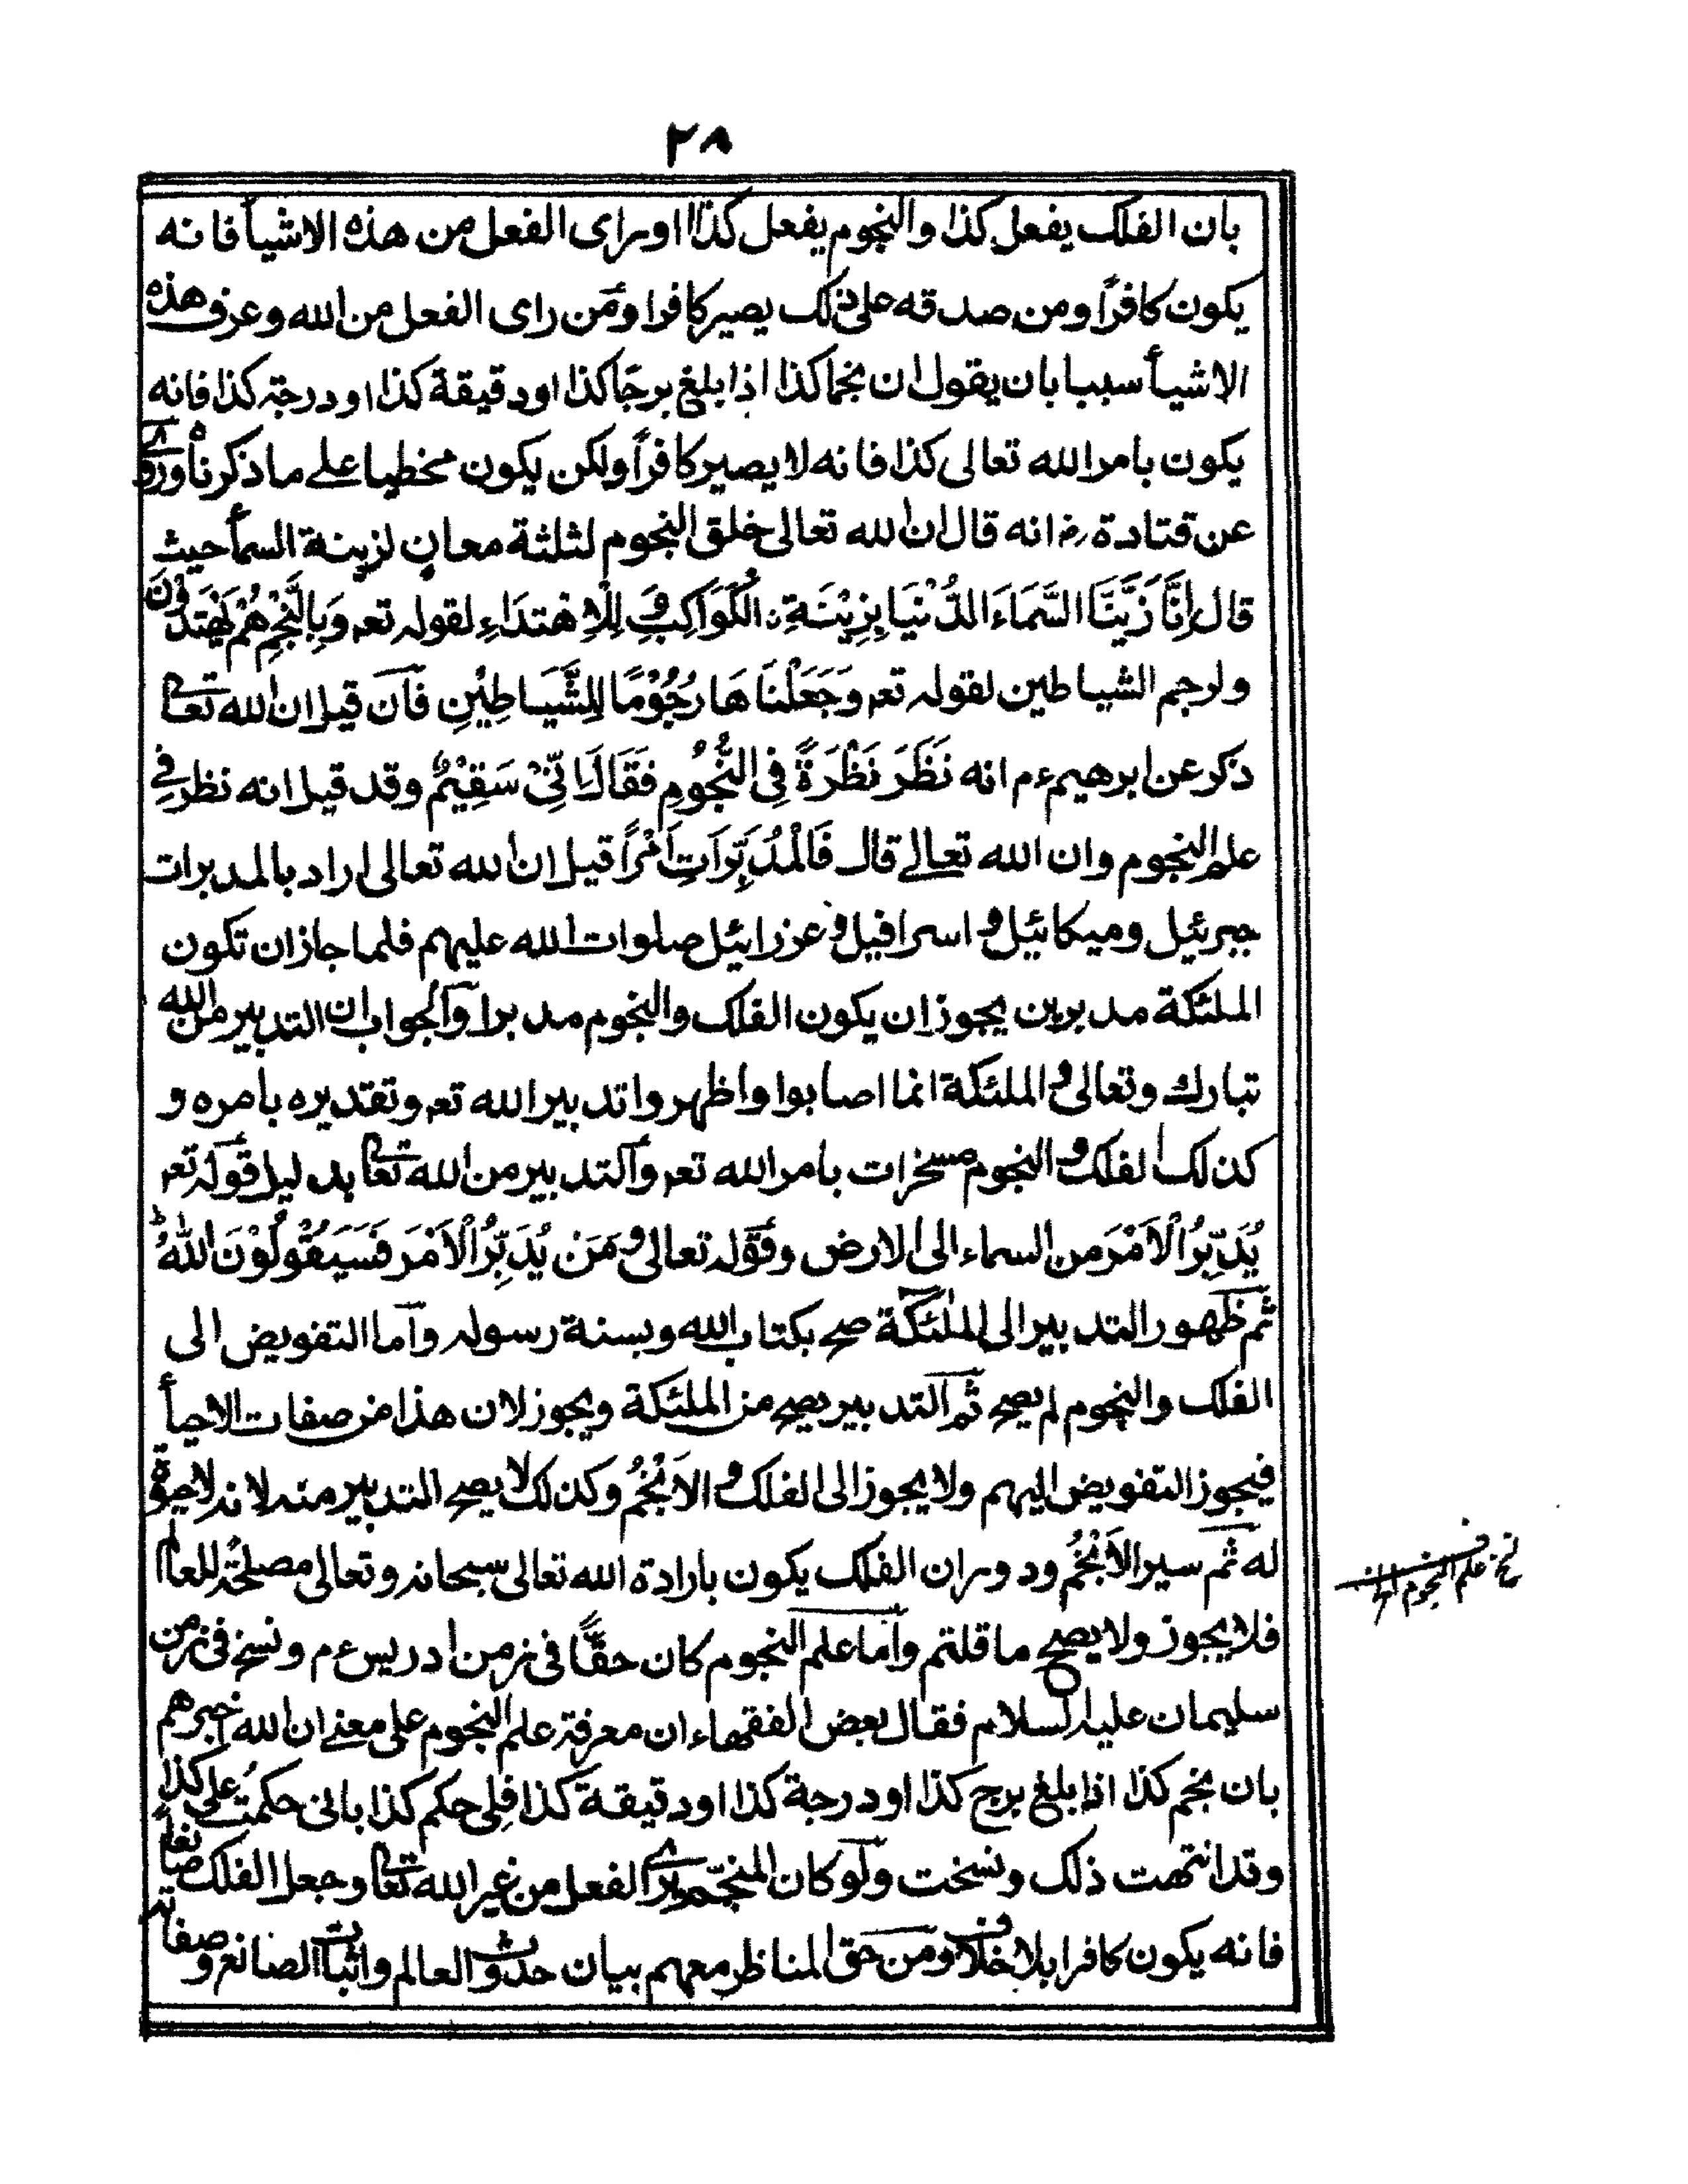 ٢٨
بان الفلك يفعل كذا والنجوم يفعل كذا اورای الفعل من هذه الاشيأ فانه
يكون كافراً ومن صدقه علیٰ ذلك يصير كافرا ومن رای الفعل من الله وعرف هذه
الاشيأ سببا بان يقول ان نجما كذا اذا بلغ برجًا كذا اودقيقة كذا اودرجة كذا فانه
يكون بامر الله تعالى كذا فانه لا يصير كافراً ولكن يكون مخطيا علے ما ذكرناه وروی
عن قتادة رض انه قال ان الله تعالى خلق النجوم لثلثة معانٍ لزينة السمأ حيث
قال اِنَّا زَيَّنَّا السَّمَاءَ الدُّنْيَا بِزِيْنَةِ نِ الْكَوَاكِبِ وَ لِلْاِهْتِدَاءِ لقوله تعہ وَبِالنَّجْمِ هُمْ يَهْتَدُوْنَ
ولرجم الشياطين لقوله تعہ وَجَعَلْنَاهَا رُجُوْمًا لِلشَّيَاطِيْنِ فان قيل ان الله تعالى
ذكر عن ابرهيم ءم انه نَظَرَ نَظْرَةً فِی النُّجُوْمِ فَقَالَ اِنِّیْ سَقِيْمٌ وقد قيل انه نظر فے
علم النجوم وان الله تعالے قال فَالْمُدَبِّرَاتِ اَمْرًا قيل ان الله تعالى اراد بالمدبرات
جبرئيل وميكائيل و اسرافيل وعزرائيل صلوات الله عليهم فلما جاز ان تكون
الملئكة مدبرين يجوز ان يكون الفلك والنجوم مدبرا والجواب ان التدبير من الله
تبارك وتعالى و الملئكة انما اصابوا واظهروا تدبير الله تعہ وتقديره بامره و
كذلك الفلك و النجوم مسخرات بامر الله تعہ والتدبير من الله تعالى بدليل قوله تعہ
يُدَبِّرُ الْاَمْرَ من السماء الى الارض وقوله تعالى وَ مَنْ يُدَبِّرُ الْاَمْرَ فَسَيَقُوْلُوْنَ اللّٰهُ ط
ثم ظهور التدبير الى الملئكة صح بكتاب الله وبسنة رسوله واما التفويض الى
الفلك والنجوم لم يصح ثم التدبير يصح من الملئكة ويجوز لان هذا من صفات الاحيأ
فيجوز التفويض اليهم ولا يجوز الى الفلك و الاَنْجُم وكذلك لا يصح التدبير منه لانه لا حيوة
له ثم سير الاَنْجُم ودوران الفلك يكون بارادة الله تعالى سبحانه وتعالى مصلحةً للعالم
فلا يجوز ولا يصح ما قلتم واما علم النجوم كان حقًّا فی زمن ادريس ءم ونسخ فی زمن
سليمان عليه السلام فقال بعض الفقهاء ان معرفة علم النجوم على معنے ان الله اخبرهم
بان نجم كذا اذا بلغ برج كذا اودرجة كذا اودقيقة كذا فلی حكم كذا بانی حكمتُ على كذا
وقد انتهت ذلك ونسخت ولو كان المنجّم يری الفعل من غير الله تعالى وجعل الفلك صانعاً
فانه يكون كافرا بلا خلاف ومن حق المناظر معهم بيان حدوث العالم واثبات الصانع وصفاته